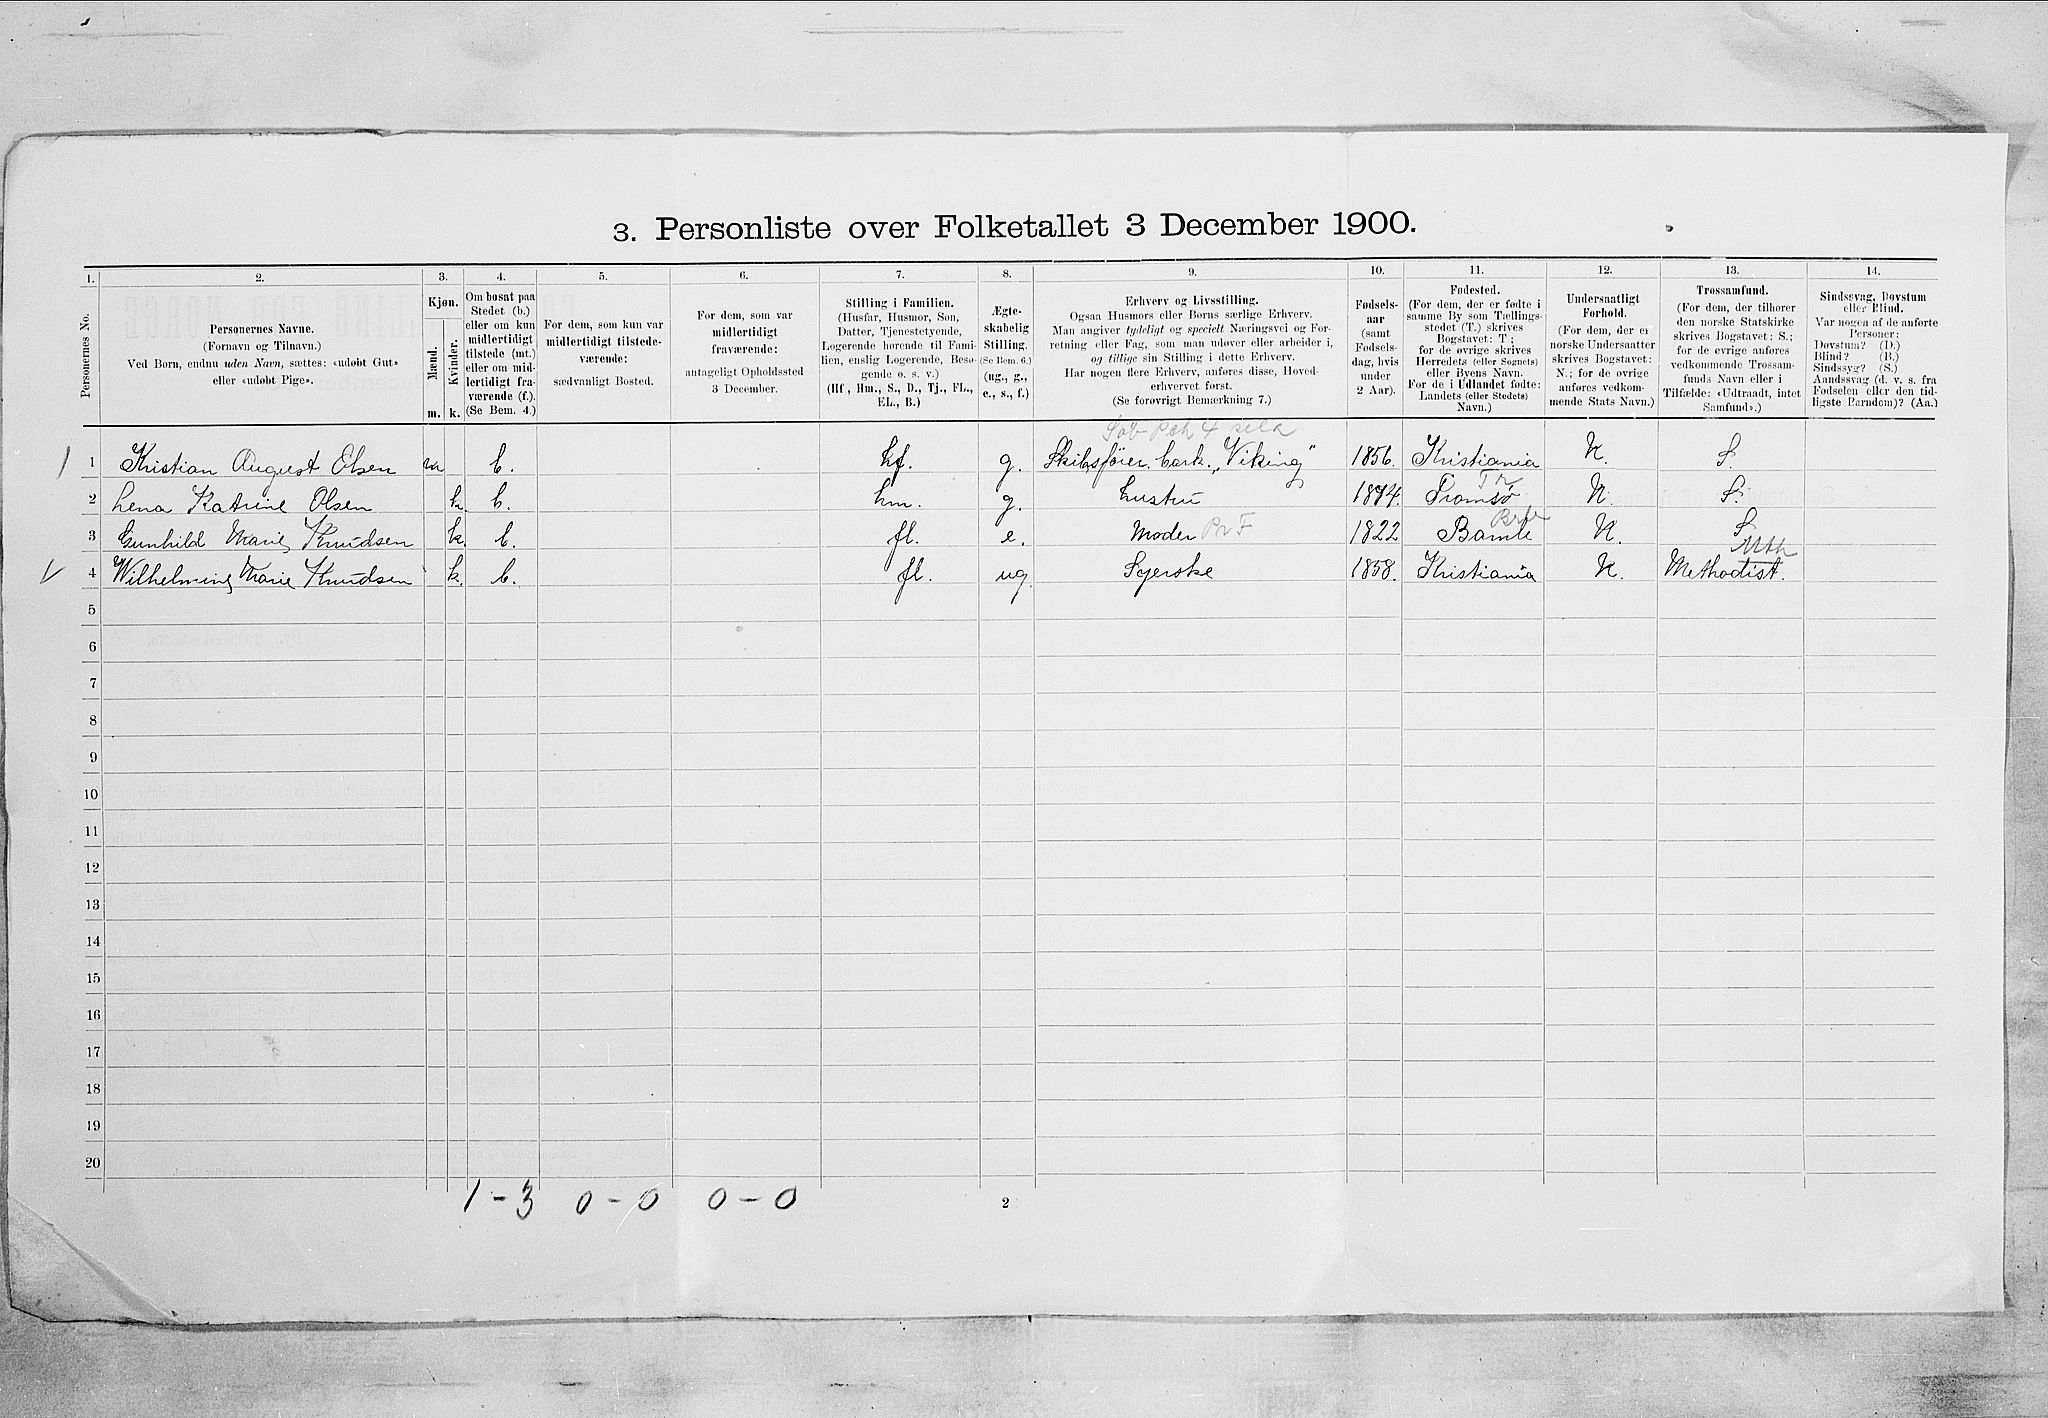 3. Personliste over Folketallet 3 December 1900.
1. 2. 3. 4. 5. 6. 7. 8. 9. 10. 11. 12. 13. 14.
Personernes No.
Personernes Navne.
(Fornavn og Tilnavn.)
Ved Børn, endnu uden Navn, sættes: «udøbt Gut»
eller «udøbt Pige».
Kjøn.
Mænd.
Kvinder.
m. k.
Om bosat paa
Stedet (b.)
eller om kun
midlertidigt
tilstede (mt.)
eller om mid-
lertidigt fra-
værende (f.).
(Se Bem. 4.)
For dem, som kun var
midlertidigt tilstede-
værende:
sædvanligt Bosted.
For dem, som var
midlertidigt
fraværende:
antageligt Opholdssted
3 December.
Stilling i Familien.
(Husfar, Husmor, Søn,
Datter, Tjenestetyende,
Logerende hørende til Fami-
lien, enslig Logerende, Besø-
gende o. s. v.)
(Hf, Hm., S., D., Tj., FL.,
EL., B.)
Ægte-
skabelig
Stilling.
(Se Bem. 6.)
(ug., g.,
e., s., f.)
Erhverv og Livsstilling.
Ogsaa Husmors eller Børns særlige Erhverv.
Man angiver tydeligt og specielt Næringsvei og For-
retning eller Fag, som man udøver eller arbeider i,
og tillige sin Stilling i dette Erhverv.
Har nogen flere Erhverv, anføres disse, Hoved-
erhvervet først.
(Se forøvrigt Bemærkning 7.)
Fødsels-
aar
(samt
Fødsels-
dag, hvis
under
2 Aar).
Fødested.
(For dem, der er fødte i
samme By som Tællings-
stedet (T.) skrives
Bogstavet: T;
for de øvrige skrives
Herredets (eller Sognets)
eller Byens Navn.
For de i Udlandet fødte:
Landets (eller Stedets)
Navn.)
Undersaatligt
Forhold.
(For dem, der er
norske Undersaatter
skrives Bogstavet:
N.; for de øvrige
anføres vedkom-
mende Stats Navn.)
Trossamfund.
(For dem, der tilhører
den norske Statskirke
skrives Bogstavet: S.;
for de øvrige anføres
vedkommende Trossam-
funds Navn eller i
Tilfælde: «Udtraadt, intet
Samfund».)
Sindssvag, Døvstum
eller Blind.
Var nogen af de anførte
Personer:
Døvstum? (D.)
Blind? (B.)
Sindssyg? (S.)
Aandssvag (d. v. s. fra
Fødselen eller den tid-
ligste Barndom)? (Aa.)
1 Kristian August Olsen m b. hf. g. Skibsfører, bark. "Viking" 1856. Kristiania N. S.
Tr
2 Lena Katrine Olsen k. b. hm. g. Hustru 1874. Tromsø N. S.
3 Gunhild Marie Knudsen k. b. fl. e. Moder Pr F 1822 Bamle N. S.
Mth
4 Wilhelmine Marie Knudsen k. b. fl. ug. Syerske 1858. Kristiania N. Methodist.
5
6
7
8
9
10
11
12
13
14
15
16
17
18
19
20
1 - 3 0 - 0 0 - 0
2